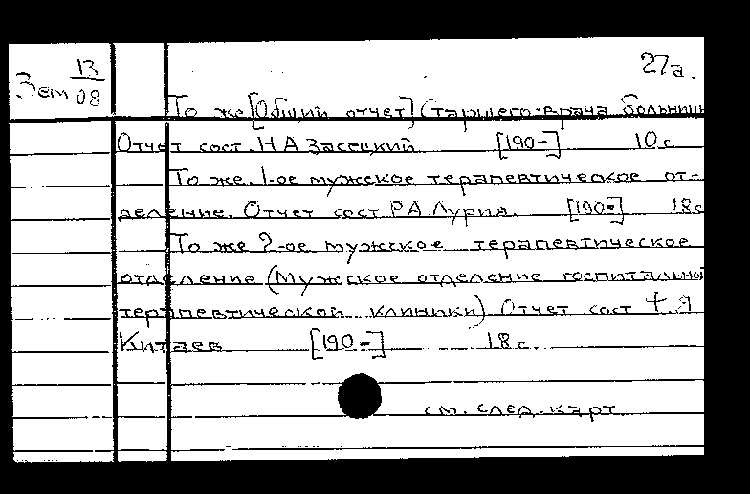 27а.
Зем 13/08
То же [Общий отчет] Старшего врача больниц
Отчет сост. Н А Засецкий [190-] 10 с
То же. 1-ое мужское терапевтическое от-
деление. Отчет сост Р.А. Лурия. [190-] 18 с
То же 2-ое мужское терапевтическое
отделение (Мужское отделение госпитальной
терапевтической клиники) Отчет сост Ф. Я
Китаев [190-] 18 с.
см. след. карт